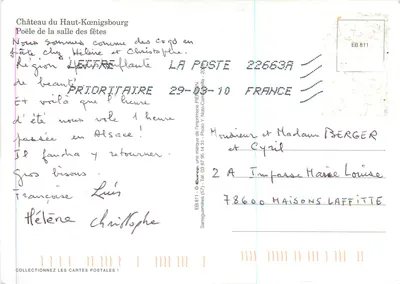 Château du Haut-Kœnigsbourg
Poêle de la salle des fêtes
Nous sommes comme des coqs en
pâte chez Hélène et Christophe.
Région
de beauté
Et voilà que l'heure
d'été nous vole 1 heure
passée en Alsace!
Il faudra y retourner.
Gros bisous.
Françoise
Hélène Christophe
LETTRE LA POSTE 22663A
PRIORITAIRE 29-03-10 FRANCE
EB 811
Monsieur et Madame BERGER
et Cyril
2 A Impasse Marie Louise
78600 MAISONS LAFFITTE
COLLECTIONNEZ LES CARTES POSTALES !